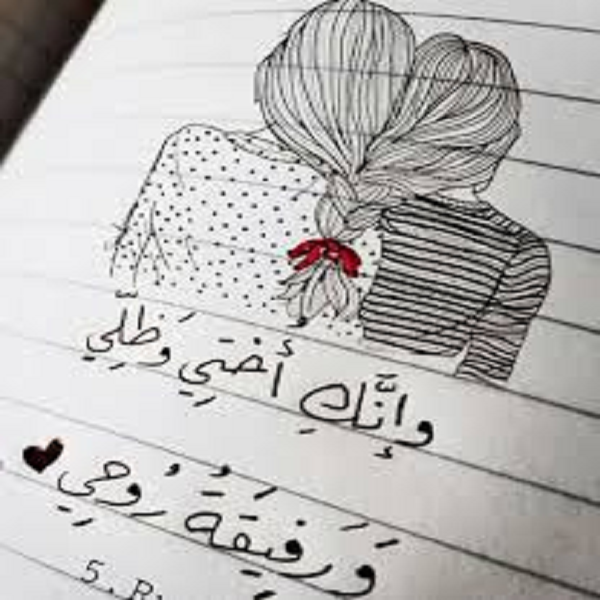 وَإِنَّكِ أُخْتِي وَظِلِّي
وَرَفِيقَةُ رُوحِي
5.